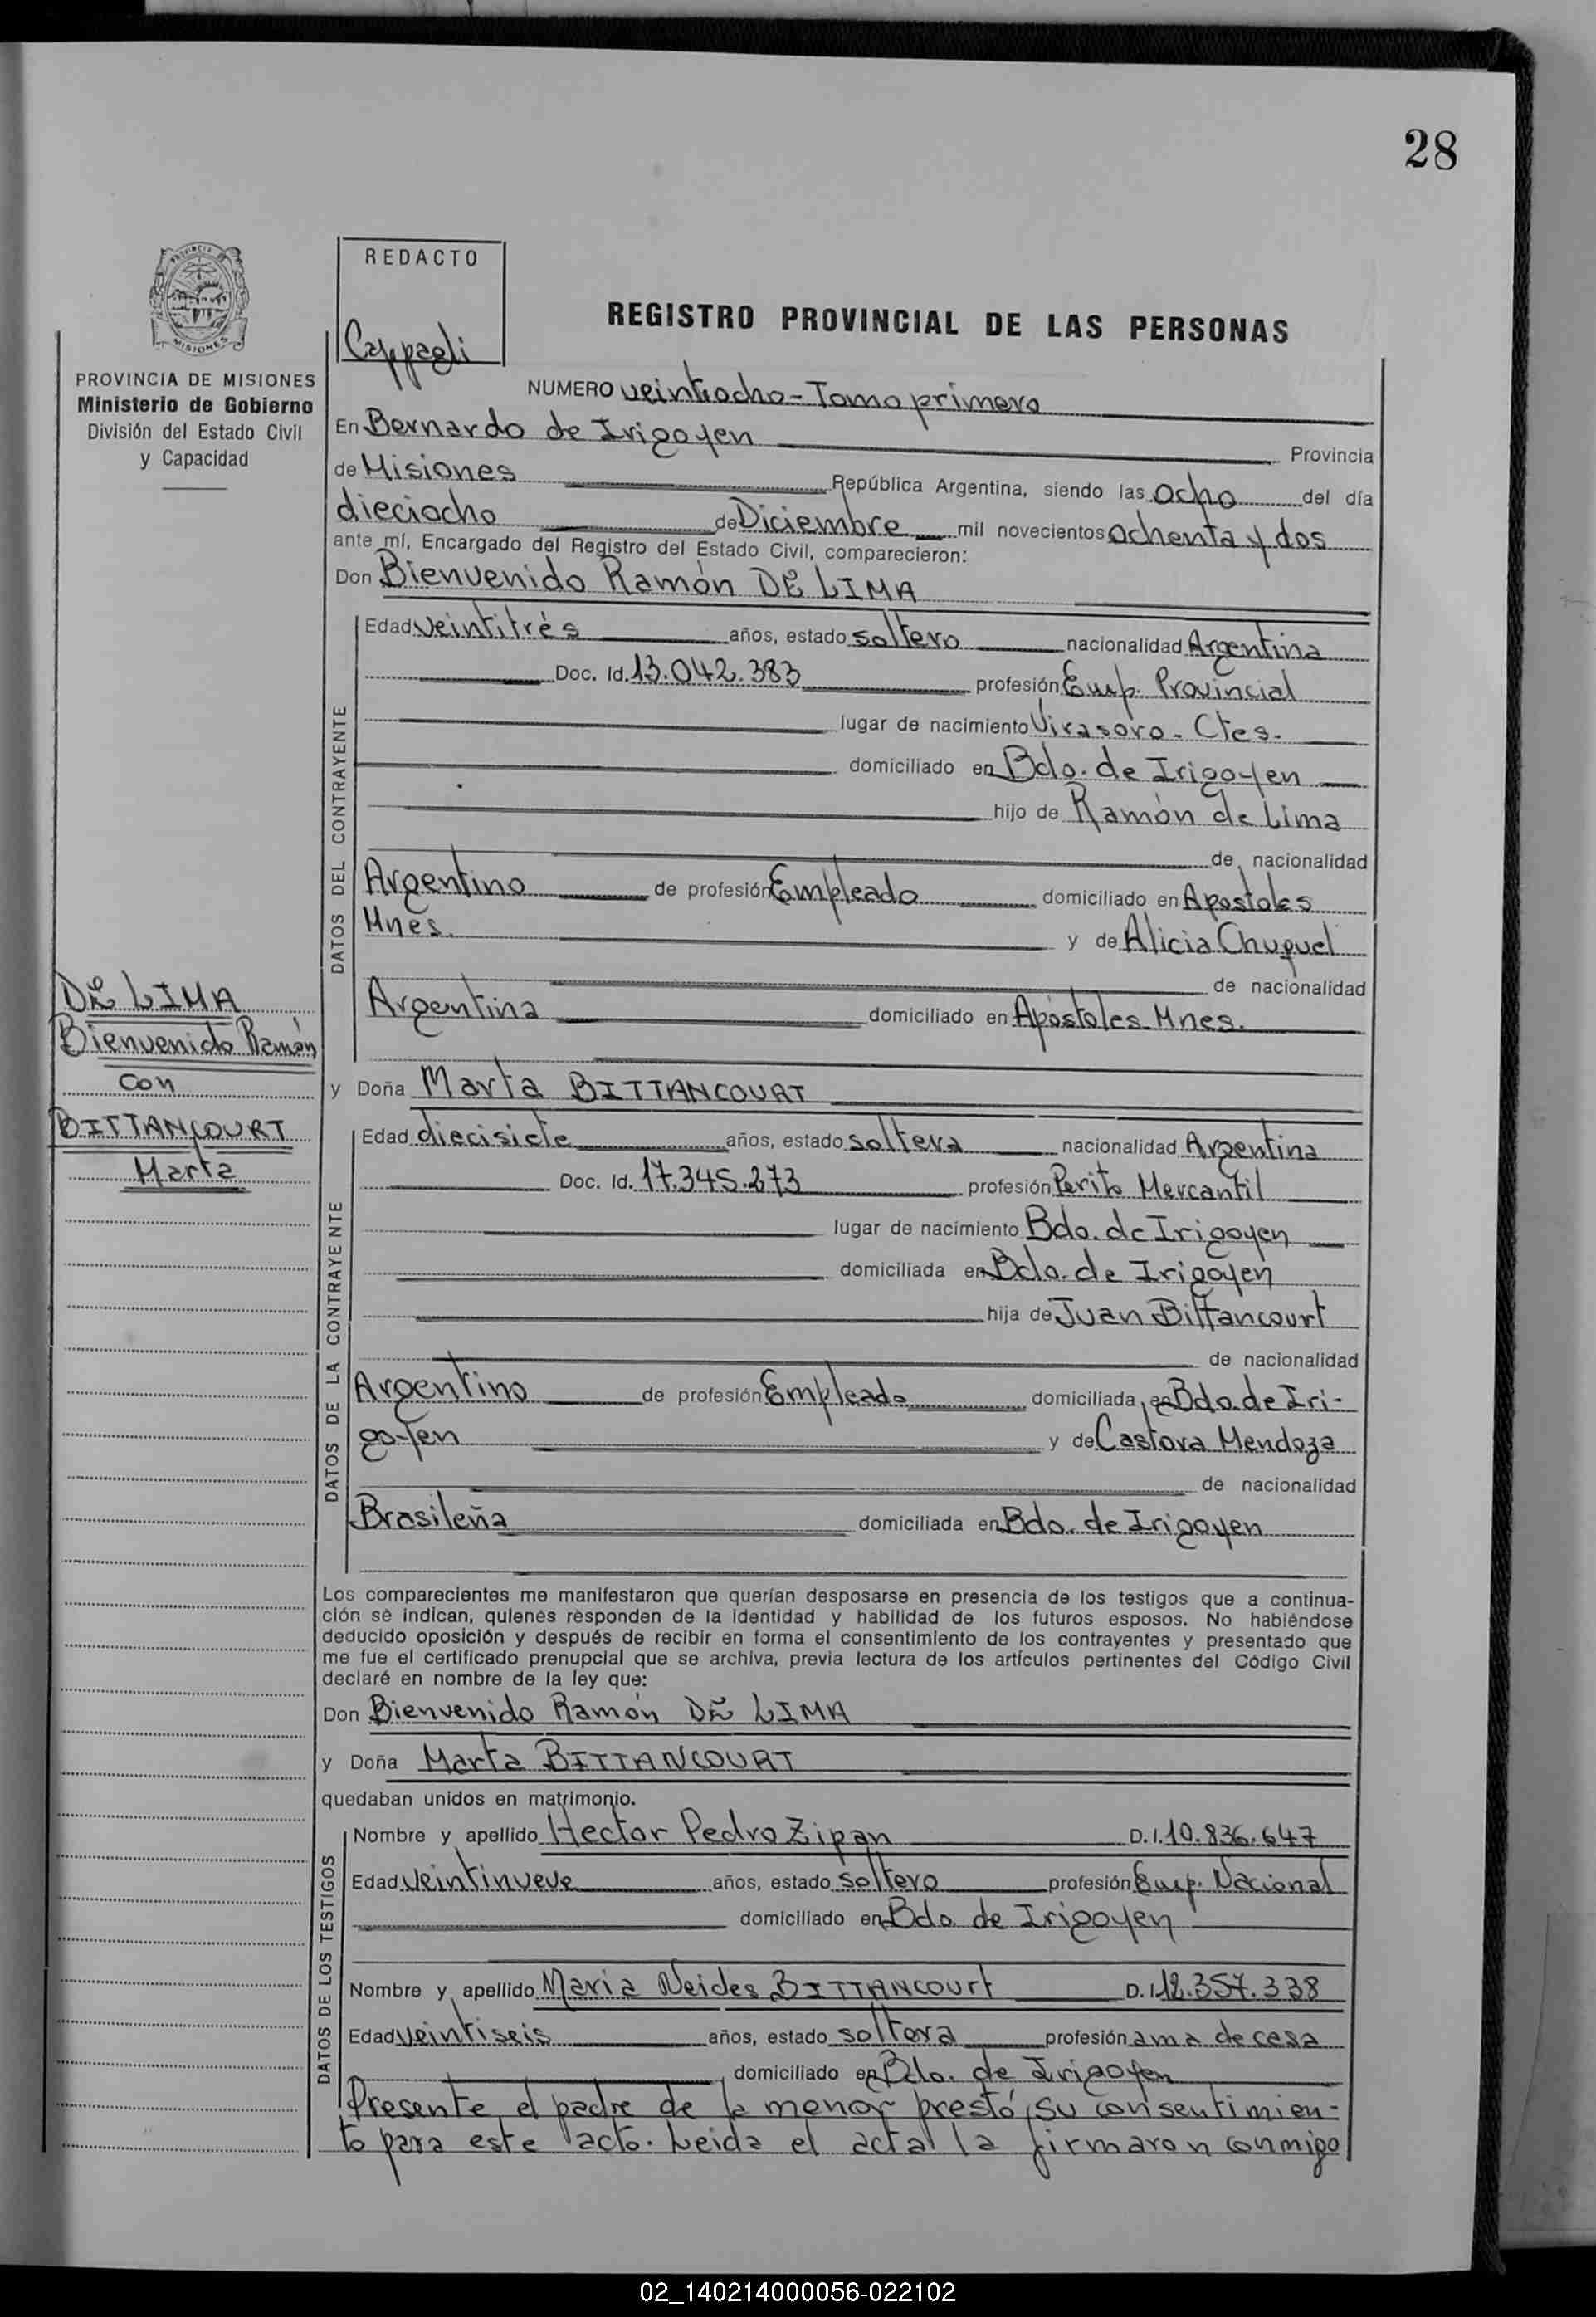 28
REDACTO
Cappagli
PROVINCIA DE MISIONES
Ministerio de Gobierno
División del Estado Civil
y Capacidad
MISIONES
REGISTRO PROVINCIAL DE LAS PERSONAS
NUMERO veintiocho - Tomo primero
En Bernardo de Irigoyen Provincia
de Misiones República Argentina, siendo las ocho del día
dieciocho de Diciembre mil novecientos ochenta y dos
ante mí, Encargado del Registro del Estado Civil, comparecieron:
Don Bienvenido Ramón DE LIMA
DATOS DEL CONTRAYENTE
Edad veintitrés años, estado soltero nacionalidad Argentina
Doc. Id. 13.042.383 profesión Emp. Provincial
lugar de nacimiento Virasoro - Ctes.
domiciliado en Bdo. de Irigoyen
hijo de Ramón de Lima
de nacionalidad
Argentino de profesión Empleado domiciliado en Apostoles
Mnes. y de Alicia Chuquel
de nacionalidad
Argentina domiciliado en Apóstoles Mnes.
DE LIMA
Bienvenido Ramón
con
BITTANCOURT
Marta
y Doña Marta BITTANCOURT
DATOS DE LA CONTRAYENTE
Edad diecisiete años, estado soltera nacionalidad Argentina
Doc. Id. 17.345.273 profesión Perito Mercantil
lugar de nacimiento Bdo. de Irigoyen
domiciliada en Bdo. de Irigoyen
hija de Juan Bittancourt
de nacionalidad
Argentino de profesión Empleado domiciliada en Bdo. de Iri-
goyen y de Castora Mendoza
de nacionalidad
Brasileña domiciliada en Bdo. de Irigoyen
Los comparecientes me manifestaron que querían desposarse en presencia de los testigos que a continua-
ción se indican, quienes responden de la identidad y habilidad de los futuros esposos. No habiéndose
deducido oposición y después de recibir en forma el consentimiento de los contrayentes y presentado que
me fue el certificado prenupcial que se archiva, previa lectura de los artículos pertinentes del Código Civil
declaré en nombre de la ley que:
Don Bienvenido Ramón DE LIMA
y Doña Marta BITTANCOURT
quedaban unidos en matrimonio.
DATOS DE LOS TESTIGOS
Nombre y apellido Hector Pedro Zipan D.I. 10.836.647
Edad veintinueve años, estado soltero profesión Emp. Nacional
domiciliado en Bdo. de Irigoyen
Nombre y apellido Maria Neides BITTANCOURT D.I. 12.357.338
Edad veintiseis años, estado soltera profesión ama de casa
domiciliado en Bdo. de Irigoyen
Presente el padre de la menor prestó su consentimien-
to para este acto. Leida el acta la firmaron conmigo
02_140214000056-022102